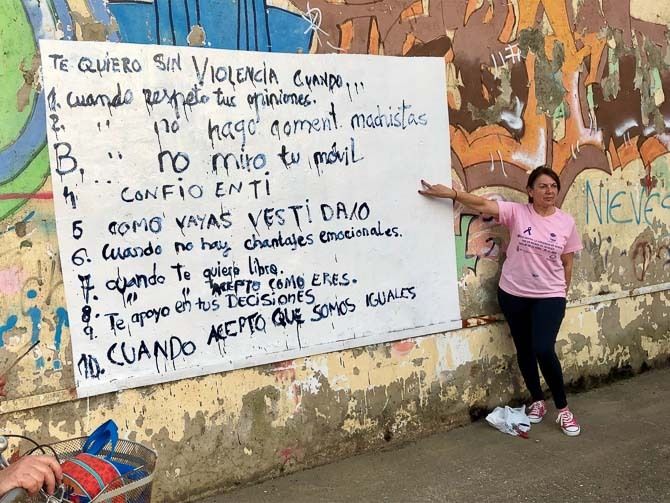 TE QUIERO SIN VIOLENCIA CUANDO,,,
1. Cuando respeto tus opiniones.
2. " no hago coment. machistas
3. " no miro tu móvil
4 CONFIO EN TI
5 COMO VAYAS VESTIDA/O
6. Cuando no hay chantajes emocionales.
7. Cuando te quiero libre.
8. " " ACEPTO COMO ERES.
9. Te apoyo en tus DECISIONES
10. CUANDO ACEPTO QUE SOMOS IGUALES
NIEVES